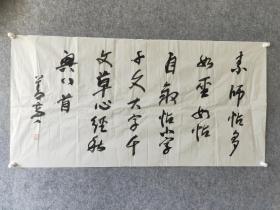 素師帖多
如聖母帖
自叙帖小字
千文大字千
文草心經秋
興八首